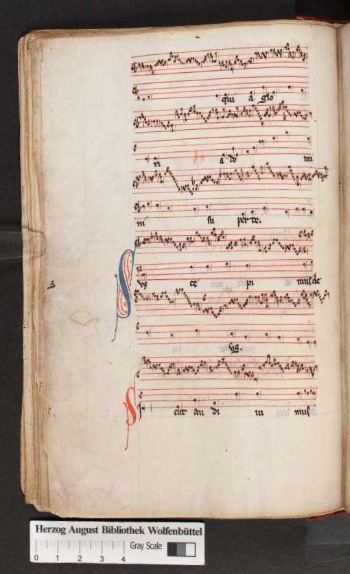 qui a glo
ri a do mi
ni su per te.
Sus ce pi mus de
us.
Sic ut au di ui mus
Herzog August Bibliothek Wolfenbüttel
0 1 2 3 4 Gray Scale